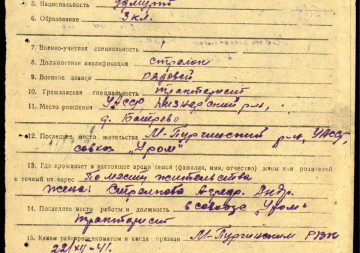 5. Национальность удмурт
6. Образование 3 кл.
7. Военно-учетная специальность
8. Должностная квалификация стрелок
9. Военное звание рядовой
10. Гражданская специальность тракторист
11. Место рождения УАССР
д.
12. Последнее место жительства М-Пургинский р-н, УАССР,
совхоз "Уром"
13. Где проживает в настоящее время семья (фамилия, имя, отчество) жены или родителей
и точный их адрес По месту жительства
жена:
14. Последнее место работы и должность в совхозе "Уром"
тракторист
15. Каким райвоенкоматом и когда призван М-Пургинским РВК
22/XII-41.